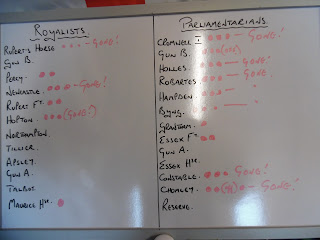 ROYALISTS
RUPERT'S HORSE GONE!
GUN B.
PERCY.
NEWCASTLE. GONE!
RUPERT Ft
HOPTON. (GONE!)
NORTHAMPTON.
TILLIER.
APSLEY.
GUN A.
TALBOT.
MAURICE Hse
PARLIAMENTARIANS.
CROMWELL I GONE!
GUN B.
HOLLES. GONE!
ROBARTES. GONE.
HAMPDEN. "
BYNG. "
GRANTHAM.
ESSEX Ft
GUN A.
ESSEX Hse
CONSTABLE. GONE!
CHOMLEY. GONE!
RESERVE.